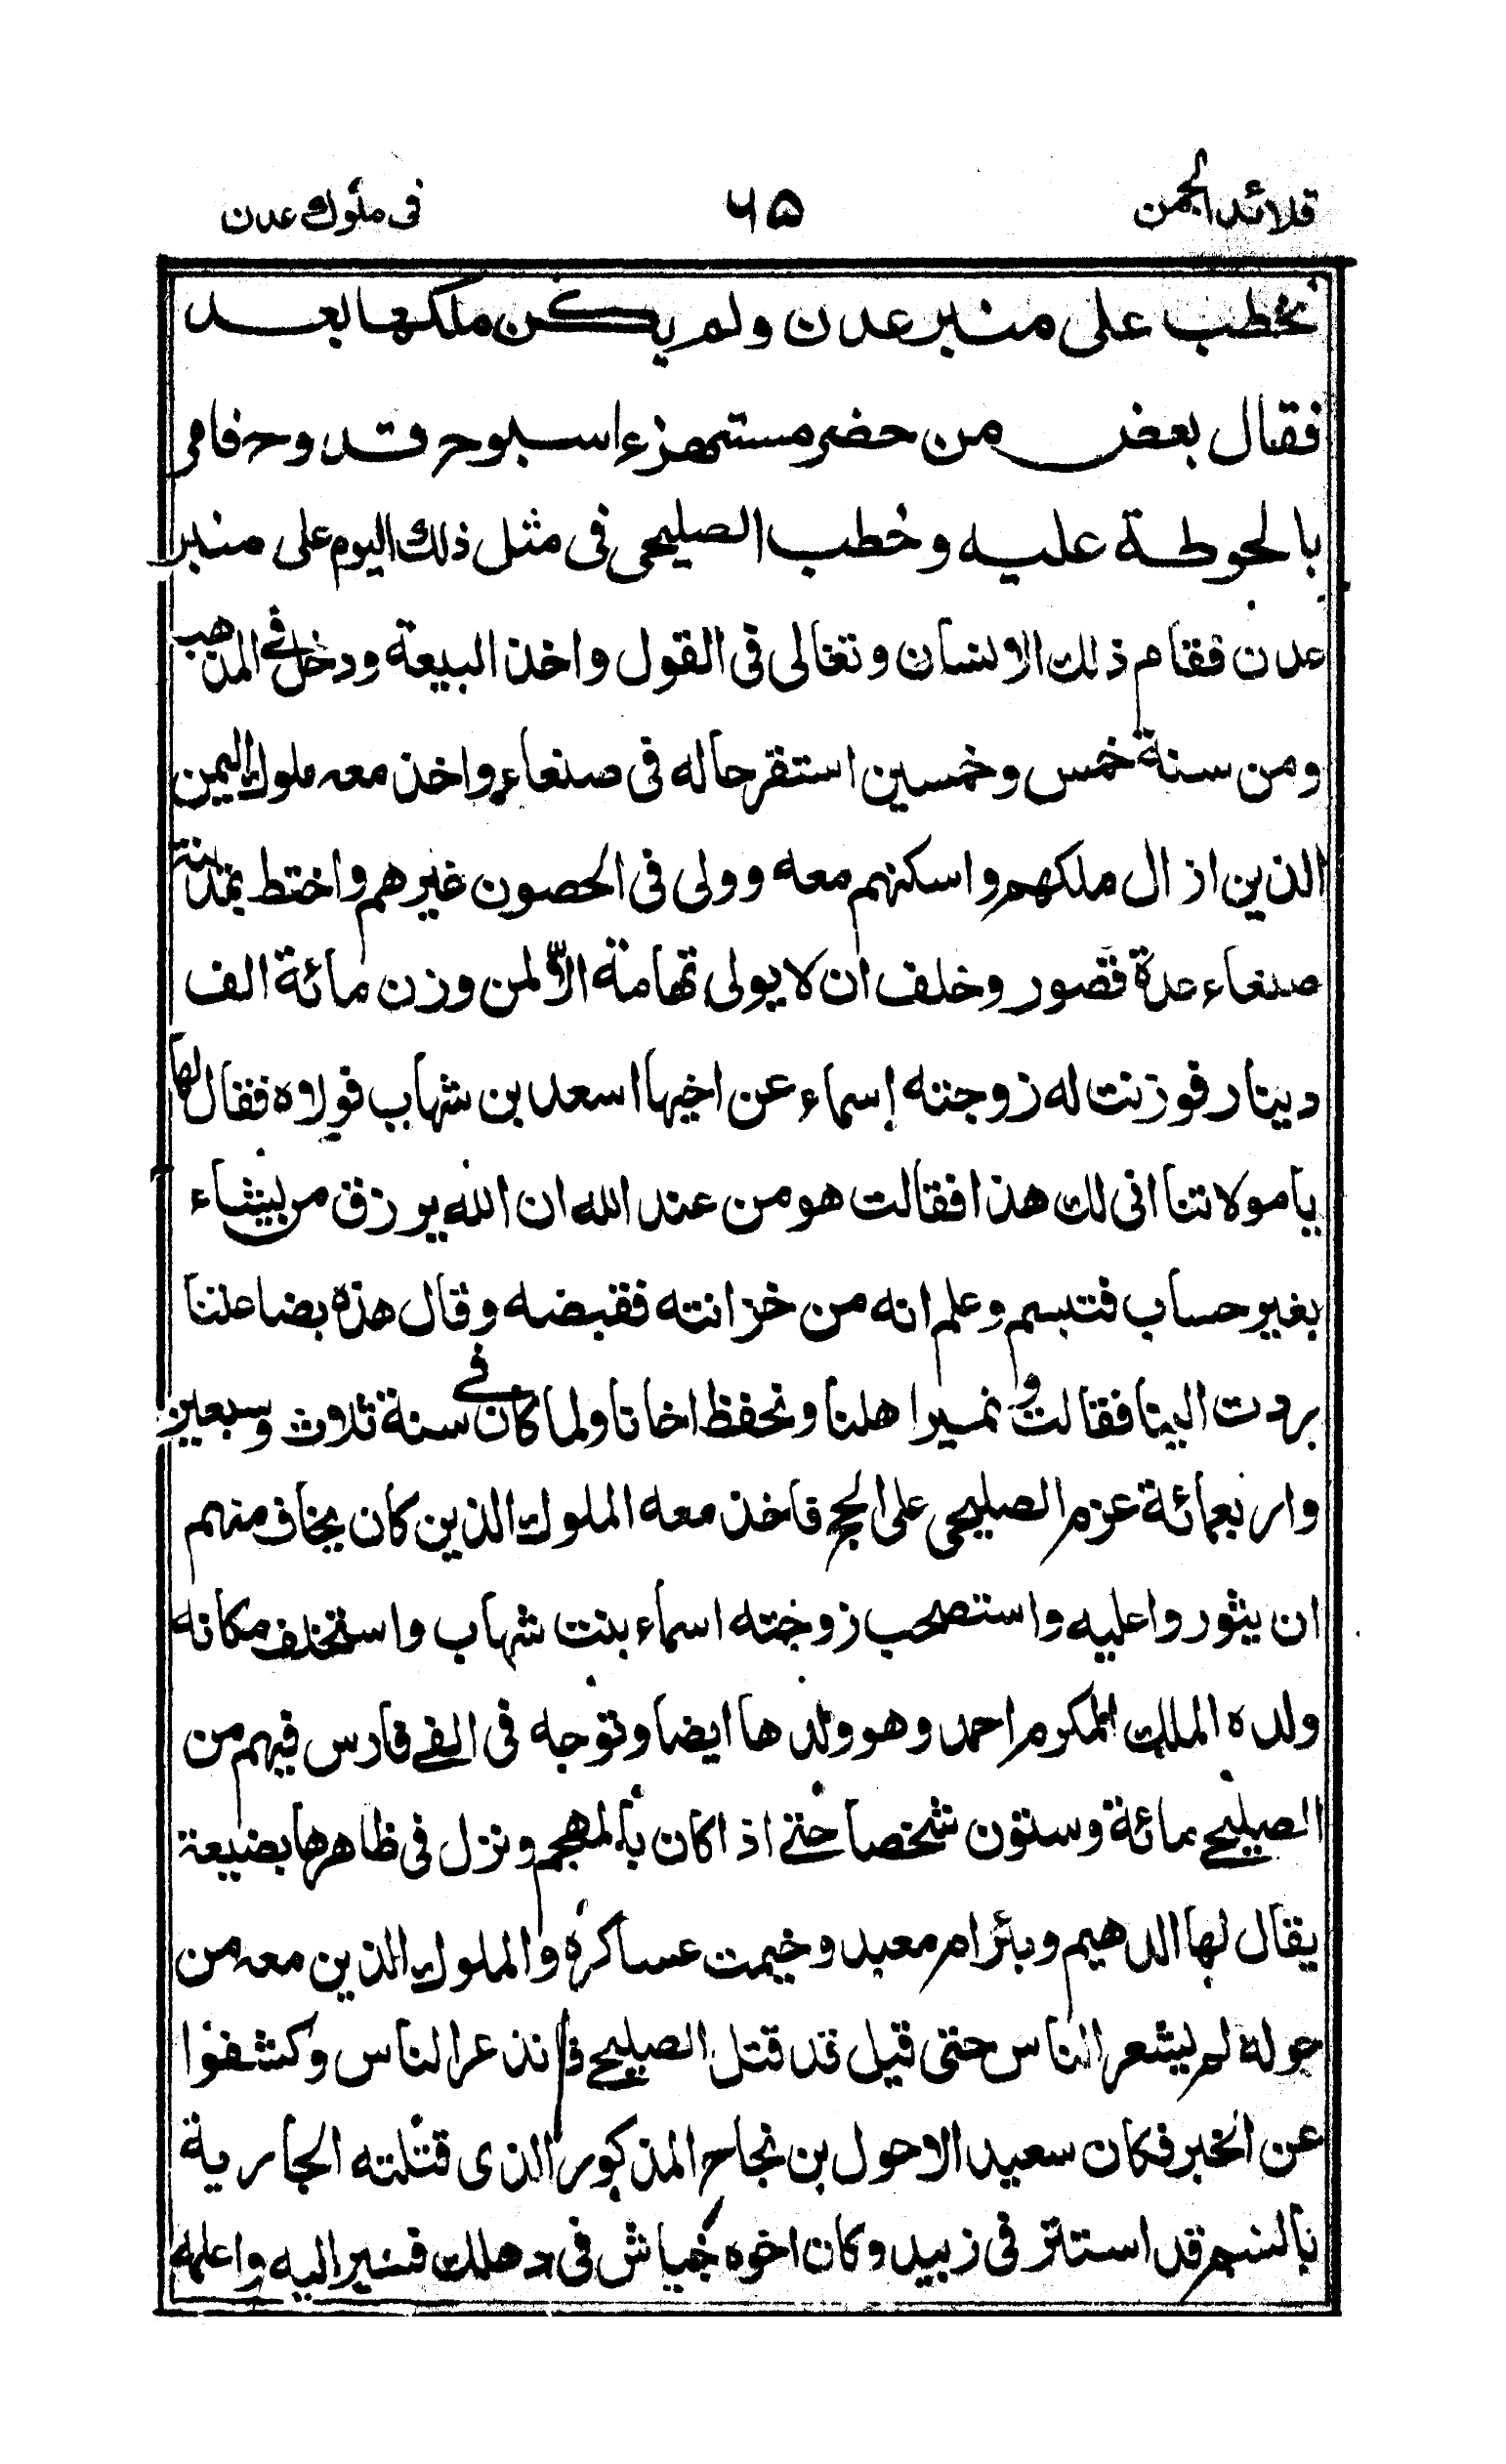 قلائد الجمن ٦٥ فى ملوك عدن
نخطب على منبر عدن ولم يكن ملكها بعد
فقال بعض من حضر مستهزءا سبوح قدوح فامر
بالحوطة عليه وخطب الصليحى فى مثل ذلك اليوم على منبر
عدن فقام ذلك الانسان وتغالى فى القول واخذ البيعة ودخل فى المذهب
ومن سنة خمس وخمسين استقر حاله فى صنعاء واخذ معه ملوك اليمن
الذين ازال ملكهم واسكنهم معه وولى فى الحصون غيرهم واختط بمدينة
صنعاء عدة قصور وخلف ان لا يولى تهامة الا لمن وزن مائة الف
دينار فوزنت له زوجته إسماء عن اخيها اسعد بن شهاب فولاه فقال لها
يا مولاتنا انى لك هذا فقالت هو من عند الله ان الله يرزق من يشاء
بغير حساب فتبسم وعلم انه من خزانته فقبضه وقال هذه بضاعتنا
ردت الينا فقالت ونميرا هلنا ونحفظ اخانا ولما كان فى سنة ثلاث وسبعين
واربعمائة عزم الصليحى على الحج فاخذ معه الملوك الذين كان يخاف منهم
ان يثوروا عليه واستصحب زوجته اسماء بنت شهاب واستخلف مكانه
ولده الملك المكرم احمد وهو ولدها ايضا وتوجه فى الفى فارس فيهم من
الصليحى مائة وستون شخصا حتى اذا كان بالمهجم ونزل فى ظاهرها بضيعة
يقال لها الدهيم وبئر ام معبد وخيمت عساكره والملوك الذين معه من
حوله لم يشعر الناس حتى قيل قد قتل الصليحى فانذعر الناس وكشفوا
عن الخبر فكان سعيد الاحول بن نجاح المذكور الذى قتلته الجارية
بالسم قد استتر فى زبيد وكان اخوه جياش فى دهلك فسير اليه واعلمه